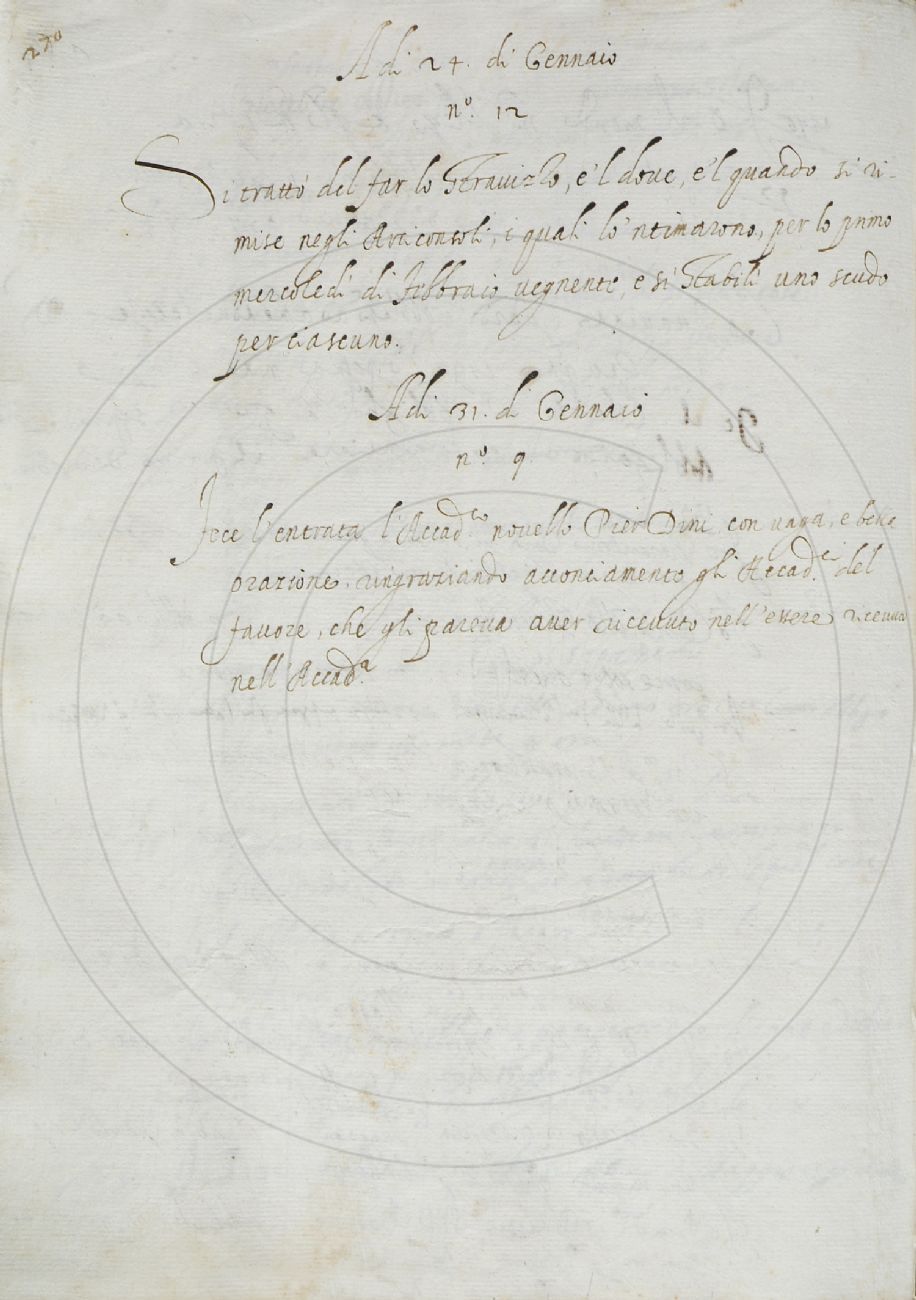 270
Adi 24. di Gennaio
n.º 12
Si trattò del far lo Stravizzo, e'l dove, e'l quando si ri-
mise negli Arciconsoli, i quali lo 'ntimarono, per lo primo
mercoledi di Febbraio vegnente, e si stabilì uno scudo
per ciascuno.
Adi 31. di Gennaio
n.º 9.
Fece l'entrata l'Accad.co novello Pier Dini con vaga, e bella
orazione, ringraziando acconciamente gli Accad.ci del
favore, che gli pareva aver ricevuto nell'essere ricevuto
nell'Accad.a